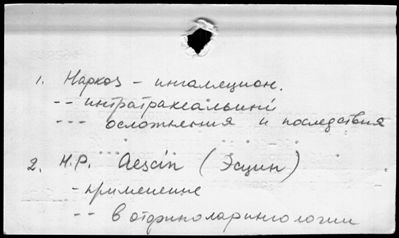 1. Наркоз - ингаляцион.
-- интратрахеальный
--- осложнения и последствия
2. Н.Р. Aescin (Эсцин)
- применение
-- в оториноларингологии